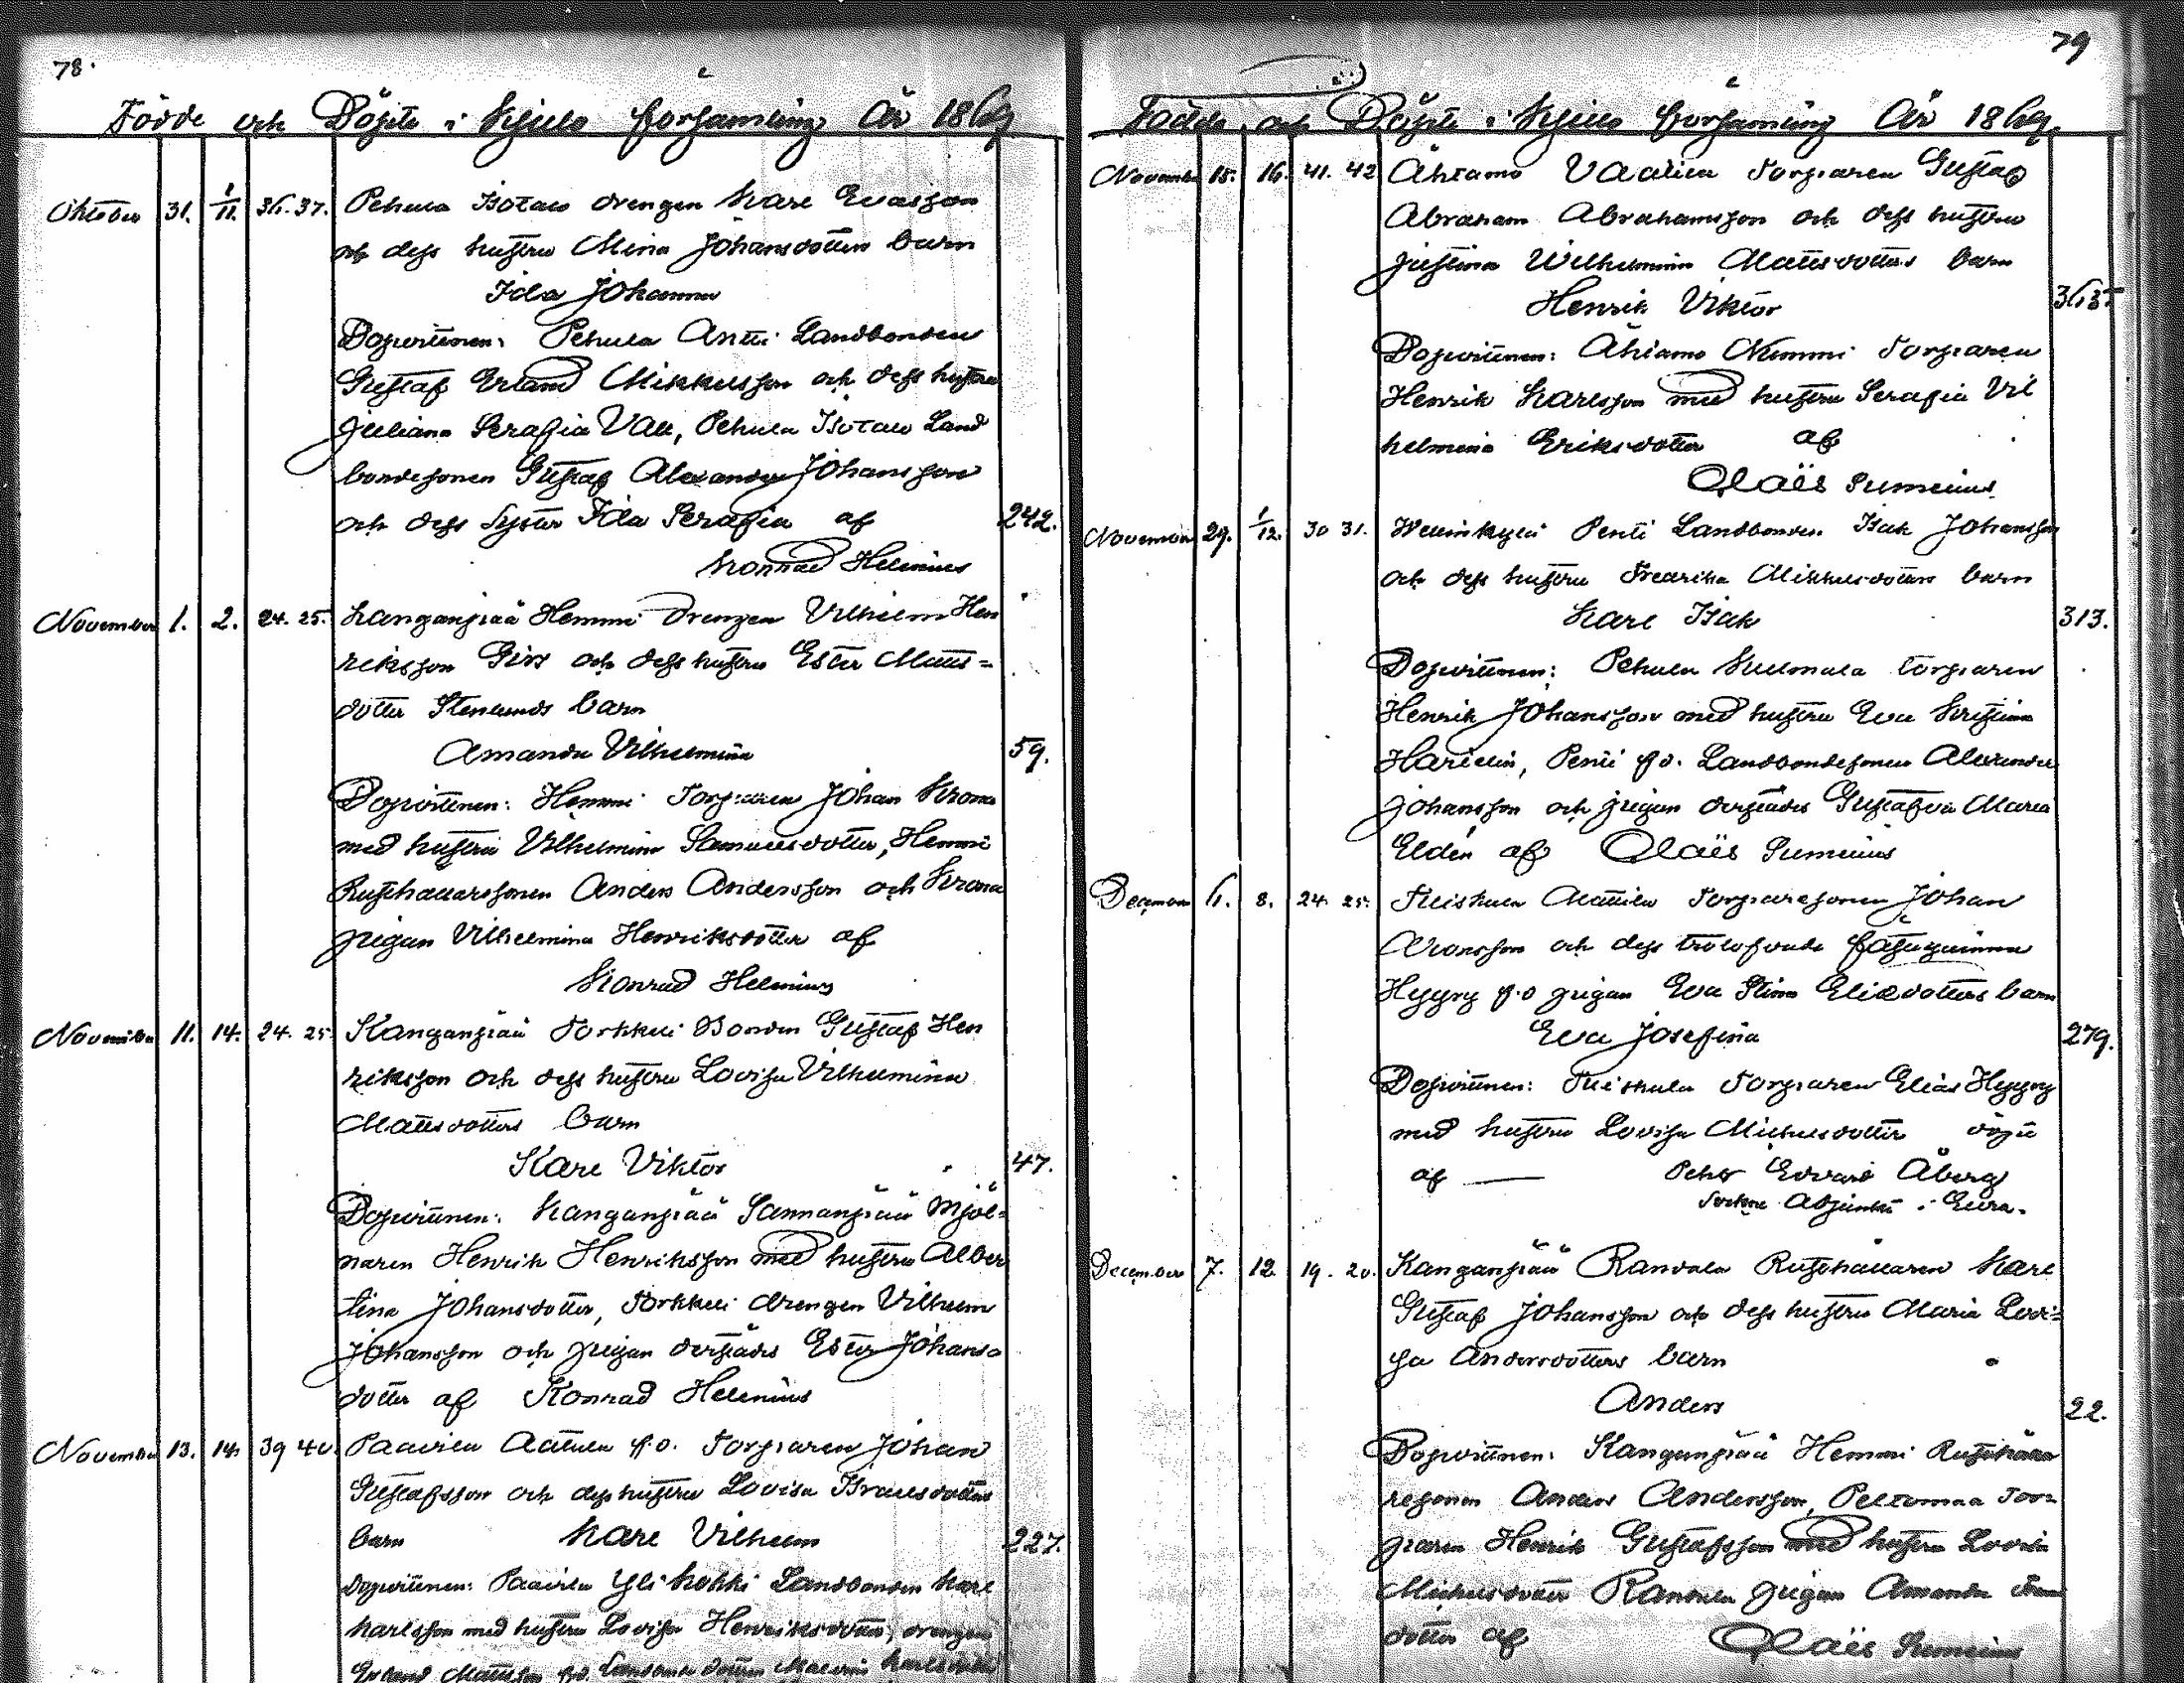 78.
Födde och Döpte i Kjulo församling År 1869
Oktober 31. 1/11. 36. 37. Pehula Isotalo drengen Karl Evasson
och dess hustru Mina Johansdotters barn
Ida Johanna
Dopvittnen: Pehula Antti Landbonden
Gustaf Erland Mikkelsson och dess hustru
Juliana Serafia Vall, Pehula Isotalo Land
bondesonen Gustaf Alexander Johansson
och dess Syster Ida Serafia af 242.
Konrad Helenius
November 1. 2. 24. 25. Kanganpää Hemmi Drengen Vilhelm Hen
riksson Girs och dess hustru Ester Matts=
dotter Stenlunds barn
Amanda Vilhelmina 59.
Dopvittnen: Hemmi Torparen Johan Krona
med hustru Vilhelmina Samuelsdotter, Hemmi
Rusthållarssonen Anders Andersson och Krona
pigan Vilhelmina Henriksdotter af
Konrad Helenius
November 11. 14. 24. 25. Kanganpää Torkkeli Bonden Gustaf Hen
riksson och dess hustru Lovisa Vilhelmina
Mattsdotters barn
Karl Viktor 47.
Dopvittnen: Kanganpää Sannanpää Mjöl=
naren Henrik Henriksson med hustru Alber
tina Johansdotter, Torkkeli drengen Vilhelm
Johansson och pigan derstädes Ester Johans
dotter af Konrad Helenius
November 13. 14. 39 40. Paavila Aattela f.d. Torparen Johan
Gustafsson och dess hustru Lovisa Israelsdotters
barn Karl Vilhelm 227.
Dopvittnen: Paavila Yli Kokki Landbonden Karl
Karlsson med hustru Lovisa Henriksdotter, drengen
Erland Mattsson
79
Födde och Döpte i Kjulo församling År 1869.
November 15. 16. 41. 42 Ähtamo Torparen Gustaf
Abraham Abrahamsson och dess hustru
Justina Wilhelmina Mattsdotters barn
Henrik Viktor
Dopvittnen: Ähtamo Nummi Torparen
Henrik Karlsson med hustru Serafia Vil
helmina Eriksdotter af
Claës Sumelius
November 29. 1/12. 30 31. Penti Landbonden Isak Johansson
och dess hustru Fredrika Mikkelsdotters barn
Karl Isak 313.
Dopvittnen: Pehula torparen
Henrik Johansson med hustru Eva Kristina
Harjelin, Penti f.d. Landbondesonen Alexander
Johansson och pigan derstädes Gustafva Maria
Eldén af Claës Sumelius
December 6. 8. 24. 25. Mattila Torparesonen Johan
Aronsson och dess trolofvade fästeqvinna
Hyyry f.d pigan Eva Stina Eliedotters barn
Eva Josefina 279.
Dopvittnen: Torparen Elias Hyyry
med hustru Lovisa Michelsdotter döpt
af — Pehr Edvard Åberg
Sockne Adjunkt i Eura.
December 7. 12 19. 20. Kanganpää Randala Rusthållaren Karl
Gustaf Johansson och dess hustru Maria Lovi=
sa Andersdotters barn
Anders 22.
Dopvittnen: Kanganpää Hemmi Rusthålla
resonen Anders Andersson, Peltomaa Tor=
paren Henrik Gustafsson med hustru Lovisa
Michelsdotter Randala pigan Amanda
dotter af Claës Sumelius